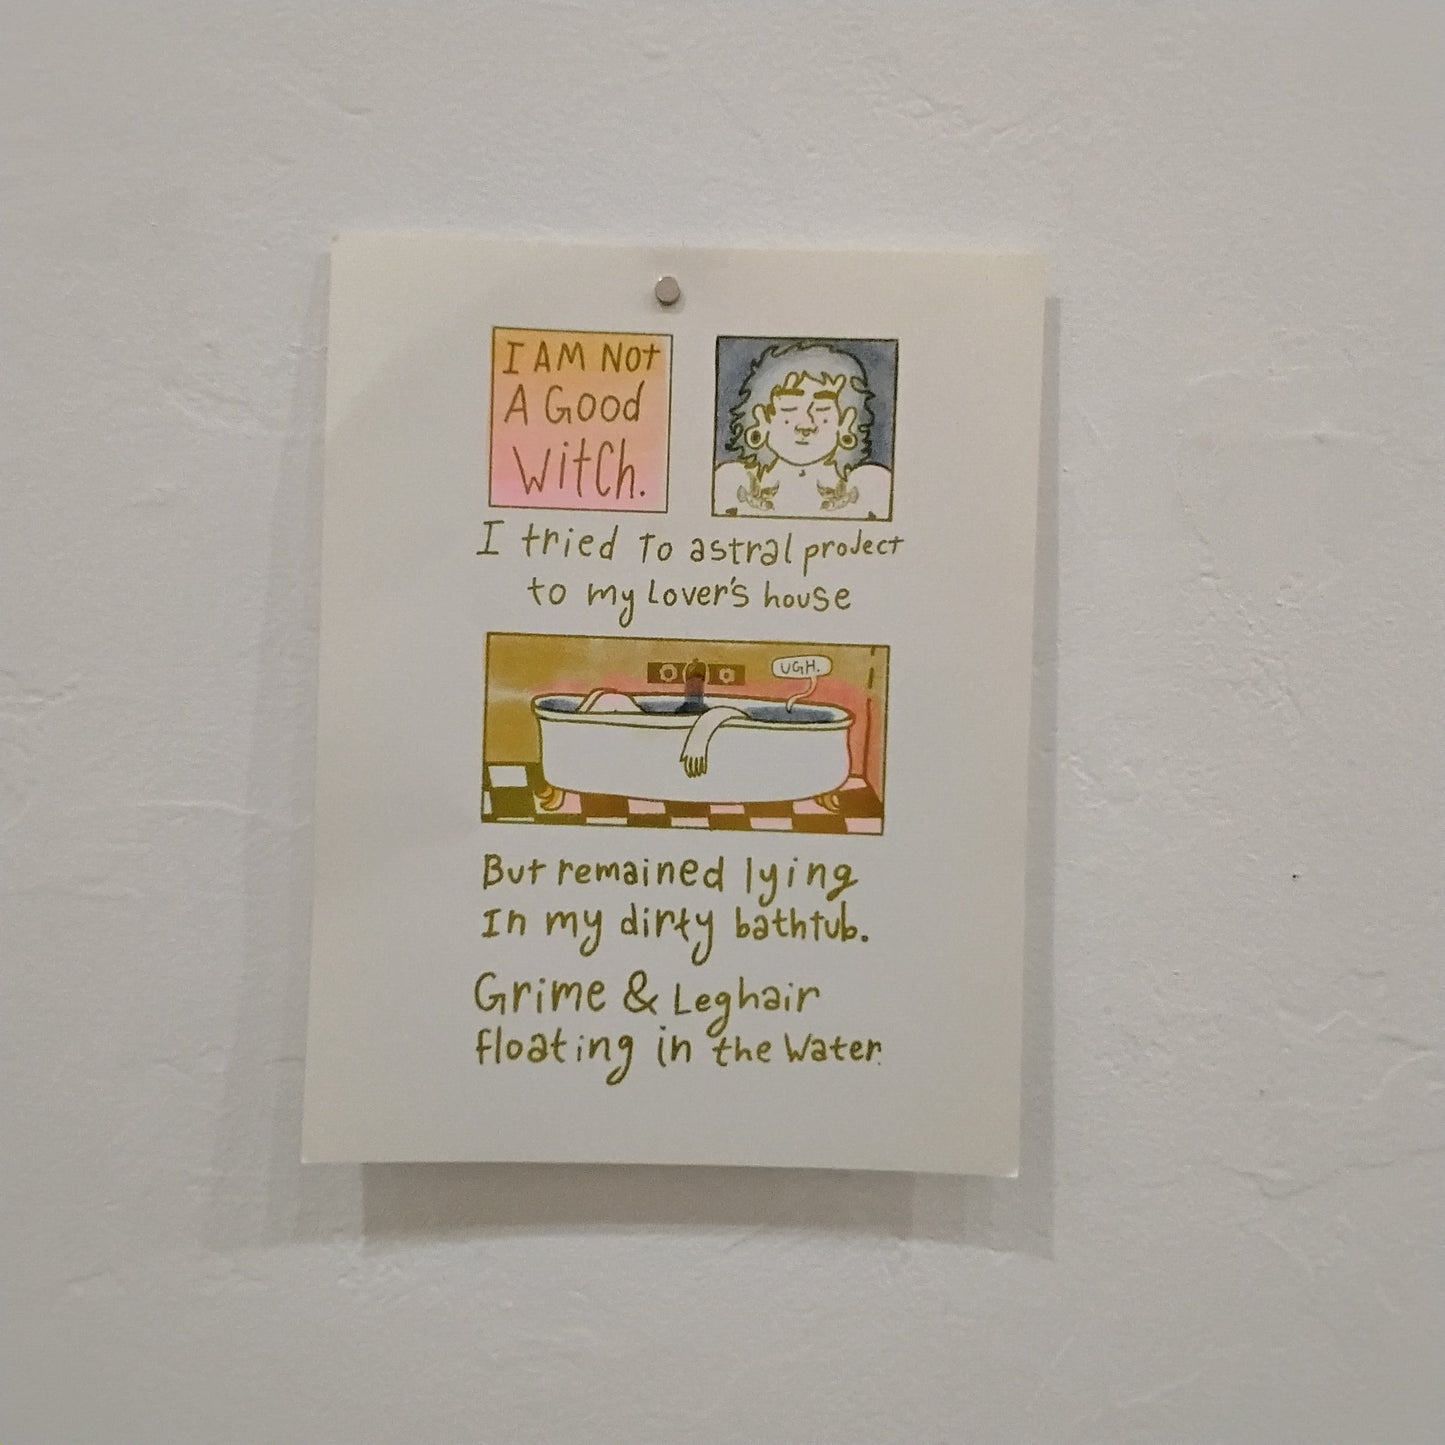 I AM Not
A Good
Witch.
I tried To astral project
to my Lover's house
UGH.
But remained lying
In my dirty bathtub.
Grime & Leghair
floating in the Water.